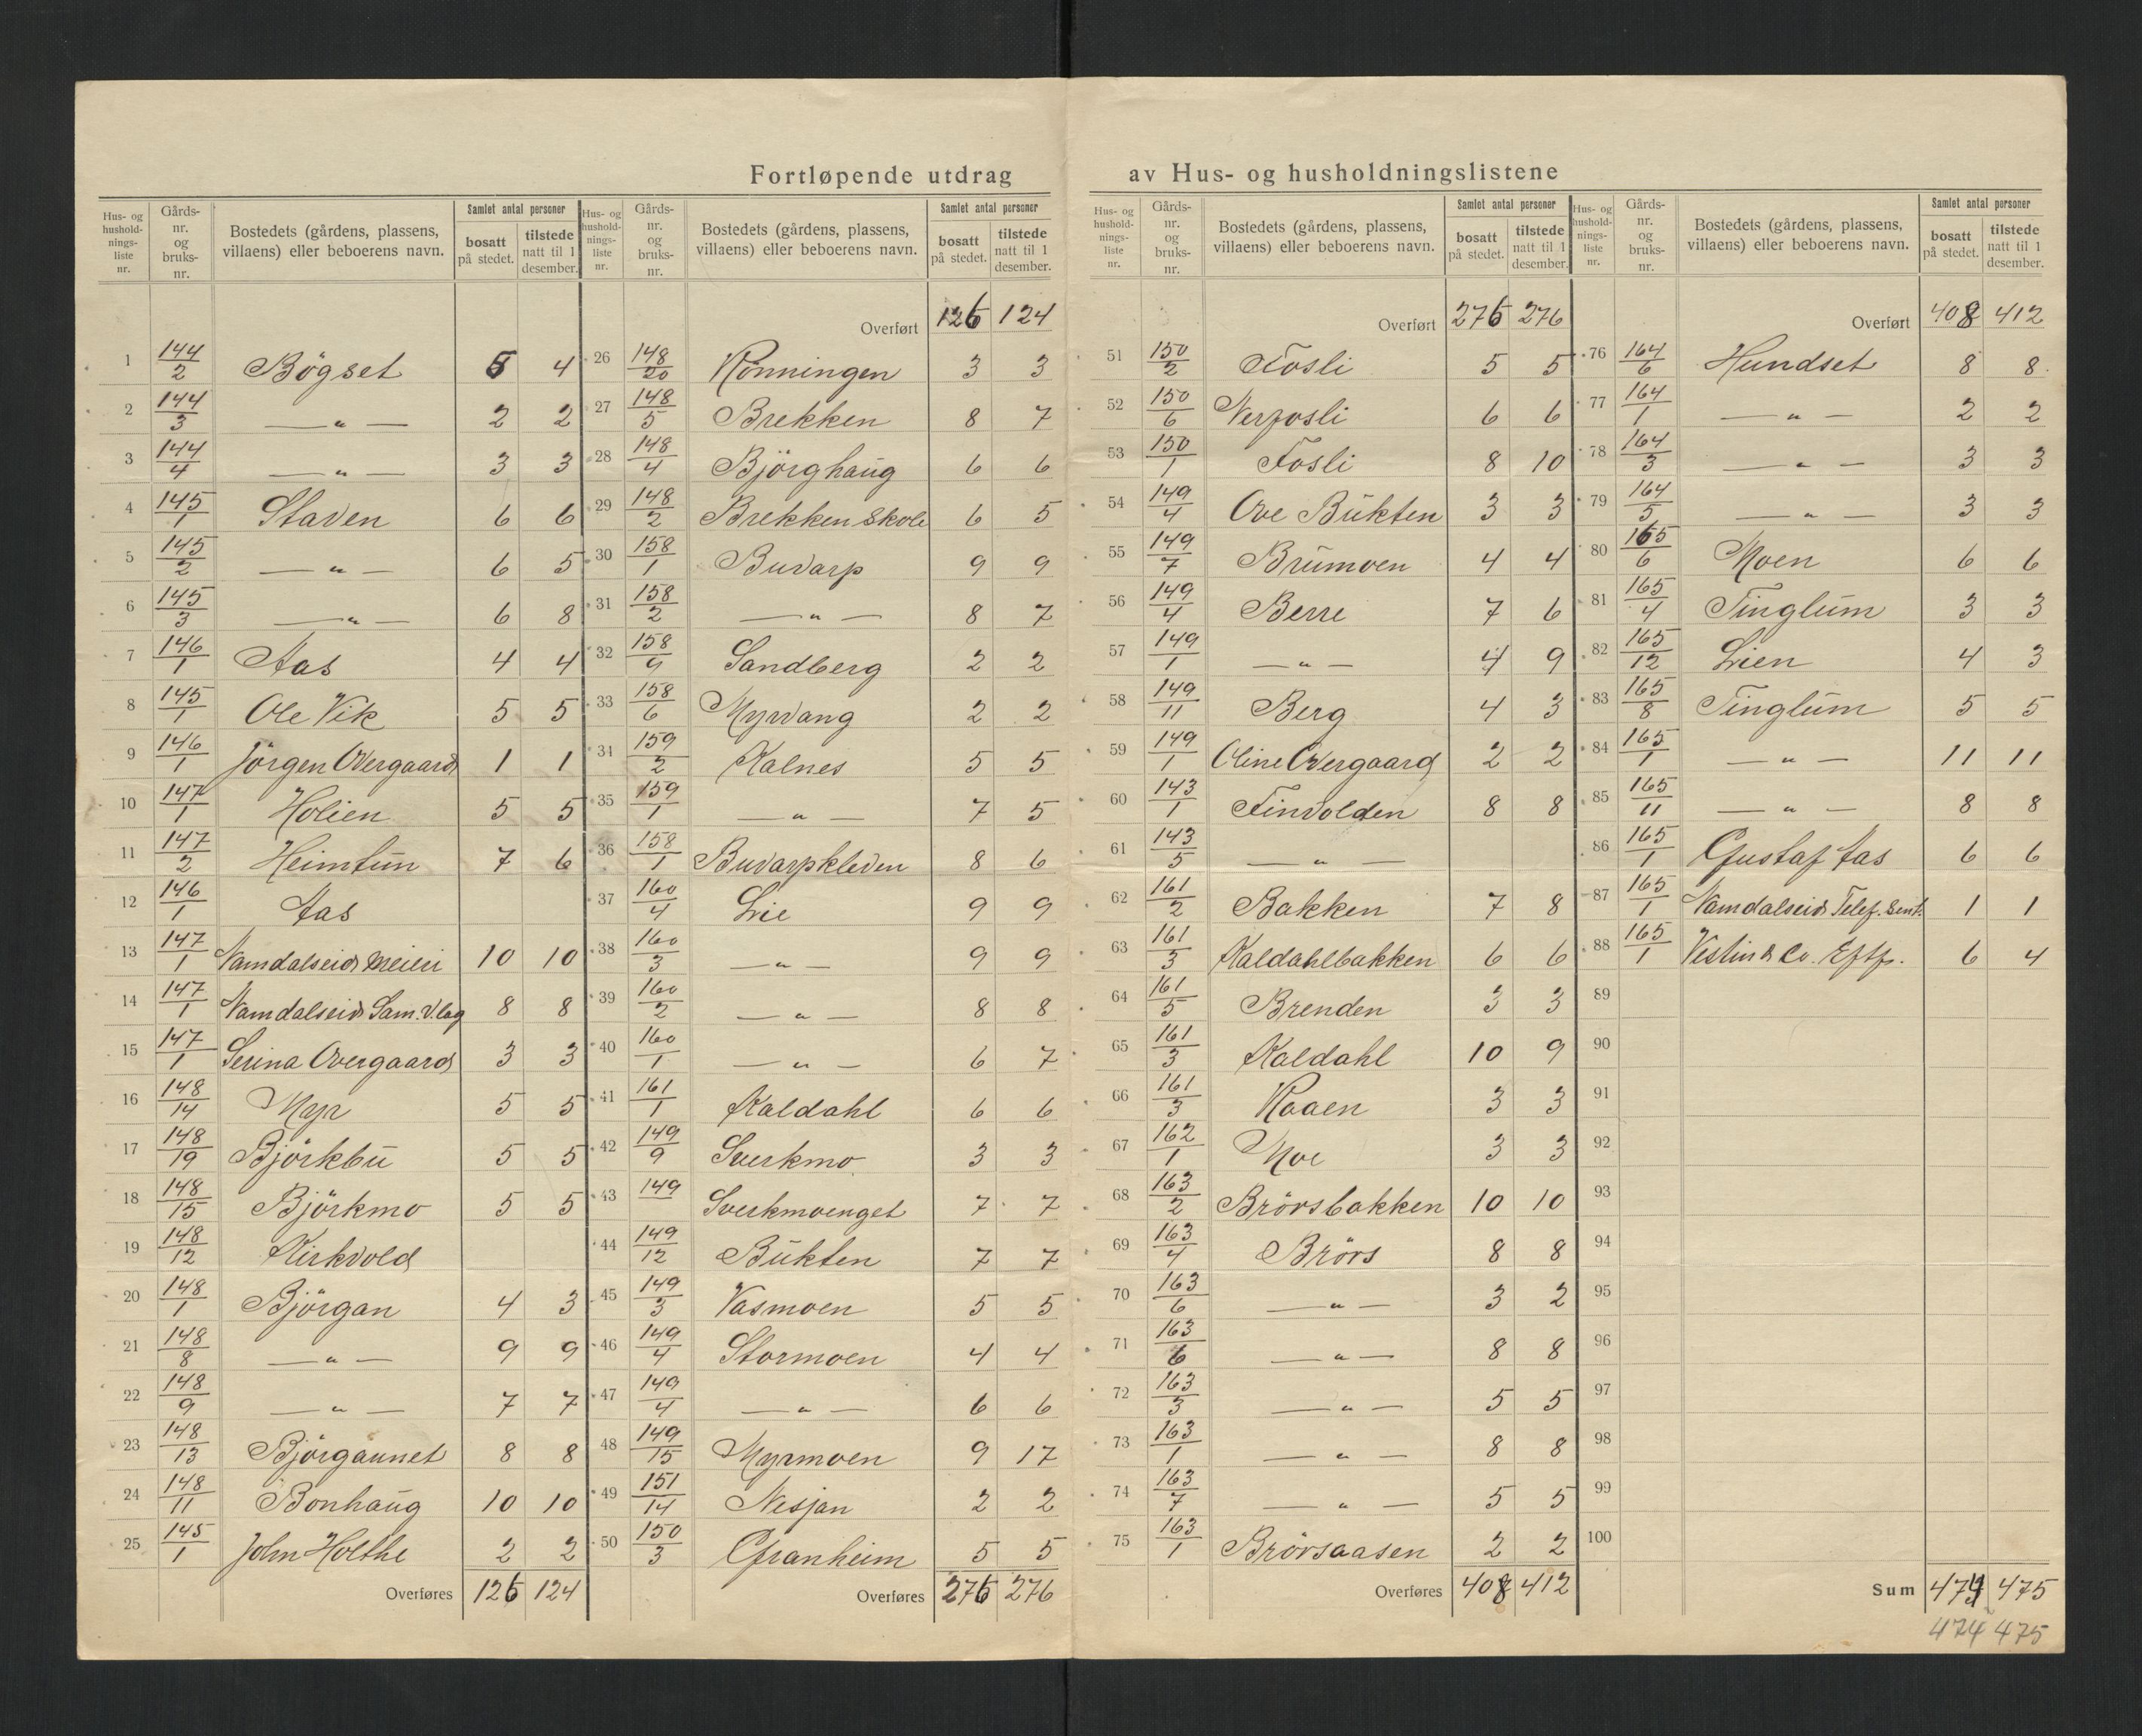 Fortløpende utdrag av Hus- og husholdningslistene
Hus- og husholdnings-liste nr. | Gårds-nr. og bruks-nr. | Bostedets (gårdens, plassens, villaens) eller beboerens navn. | Samlet antal personer | bosatt på stedet. | tilstede natt til 1 desember.
1 144/2 Bögset 5 4
2 144/3 — „ — 2 2
3 144/4 — „ — 3 3
4 145/1 Staven 6 6
5 145/2 — „ — 6 5
6 145/3 — „ — 6 8
7 146/1 Aas 4 4
8 145/1 Ole Vik 5 5
9 146/1 Jörgen Overgaard 1 1
10 147/1 Holien 5 5
11 147/2 Heimtun 7 6
12 146/1 Aas
13 147/1 Namdalseid Meieri 10 10
14 147/1 Namdalseid Sam.V.lag 8 8
15 147/1 Serina Overgaard 3 3
16 148/14 Myr 5 5
17 148/19 Björkbu 5 5
18 148/15 Björkmo 5 5
19 148/12 Kirkvold
20 148/1 Björgan 4 3
21 148/8 — „ — 9 9
22 148/9 — „ — 7 7
23 148/13 Björgaunet 8 8
24 148/11 Bonhaug 10 10
25 145/1 John Holthe 2 2
Overføres 126 124
Hus- og husholdnings-liste nr. | Gårds-nr. og bruks-nr. | Bostedets (gårdens, plassens, villaens) eller beboerens navn. | Samlet antal personer | bosatt på stedet. | tilstede natt til 1 desember.
Overført 126 124
26 148/20 Rönningen 3 3
27 148/5 Brekken 8 7
28 148/4 Björghaug 6 6
29 148/2 Brekken Skole 6 5
30 158/1 Buvarp 9 9
31 158/2 — „ — 8 7
32 158/9 Sandberg 2 2
33 158/6 Myrvang 2 2
34 159/2 Kalnes 5 5
35 159/1 — „ — 7 5
36 158/1 Buvarpkleven 8 6
37 160/4 Lie 9 9
38 160/3 — „ — 9 9
39 160/2 — „ — 8 8
40 160/1 — „ — 6 7
41 161/1 Kaldahl 6 6
42 149/9 Sverkmo 3 3
43 149 Sverkmoenget 7 7
44 149/12 Bukten 7 7
45 149/3 Vasmoen 5 5
46 149/4 Stormoen 4 4
47 149/4 — „ — 6 6
48 149/15 Myrmoen 9 17
49 151/14 Nesjan 2 2
50 150/3 Granheim 5 5
Overføres 276 276
Hus- og hushold-nings-liste nr. | Gårds-nr. og bruks-nr. | Bostedets (gårdens, plassens, villaens) eller beboerens navn. | Samlet antal personer | bosatt på stedet. | tilstede natt til 1 desember.
Overført 276 276
51 150/2 Fosli 5 5
52 150/6 Nerfosli 6 6
53 150/1 Fosli 8 10
54 149/4 Ove Bukten 3 3
55 149/7 Brumoen 4 4
56 149/4 Berre 7 6
57 149/1 — „ — 4 9
58 149/11 Berg 4 3
59 149/1 Oline Overgaard 2 2
60 143/1 Finvolden 8 8
61 143/5 — „ —
62 161/2 Bakken 7 8
63 161/3 Kaldahlbakken 6 6
64 161/5 Brenden 3 3
65 161/3 Kaldahl 10 9
66 161/3 Raaen 3 3
67 162/1 Moe 3 3
68 163/2 Brörsbakken 10 10
69 163/4 Brörs 8 8
70 163/6 — „ — 3 2
71 163/6 — „ — 8 8
72 163/3 — „ — 5 5
73 163/1 — „ — 8 8
74 163/7 — „ — 5 5
75 163/1 Brörsaasen 2 2
Overføres 408 412
Hus- og hushold-nings-liste nr. | Gårds-nr. og bruks-nr. | Bostedets (gårdens, plassens, villaens) eller beboerens navn. | Samlet antal personer | bosatt på stedet. | tilstede natt til 1 desember.
Overført 408 412
76 164/6 Hundset 8 8
77 164/1 — „ — 2 2
78 164/3 — „ — 3 3
79 164/5 — „ — 3 3
80 165/6 Moen 6 6
81 165/4 Tinglum 3 3
82 165/12 Lien 4 3
83 165/8 Tinglum 5 5
84 165/1 — „ — 11 11
85 165/11 — „ — 8 8
86 165/1 Gustaf Aas 6 6
87 165/1 Namdalseid Telef. Sent. 1 1
88 165/1 Vestin & Co. Eftf. 6 4
89
90
91
92
93
94
95
96
97
98
99
100
Sum 474 475
474 475